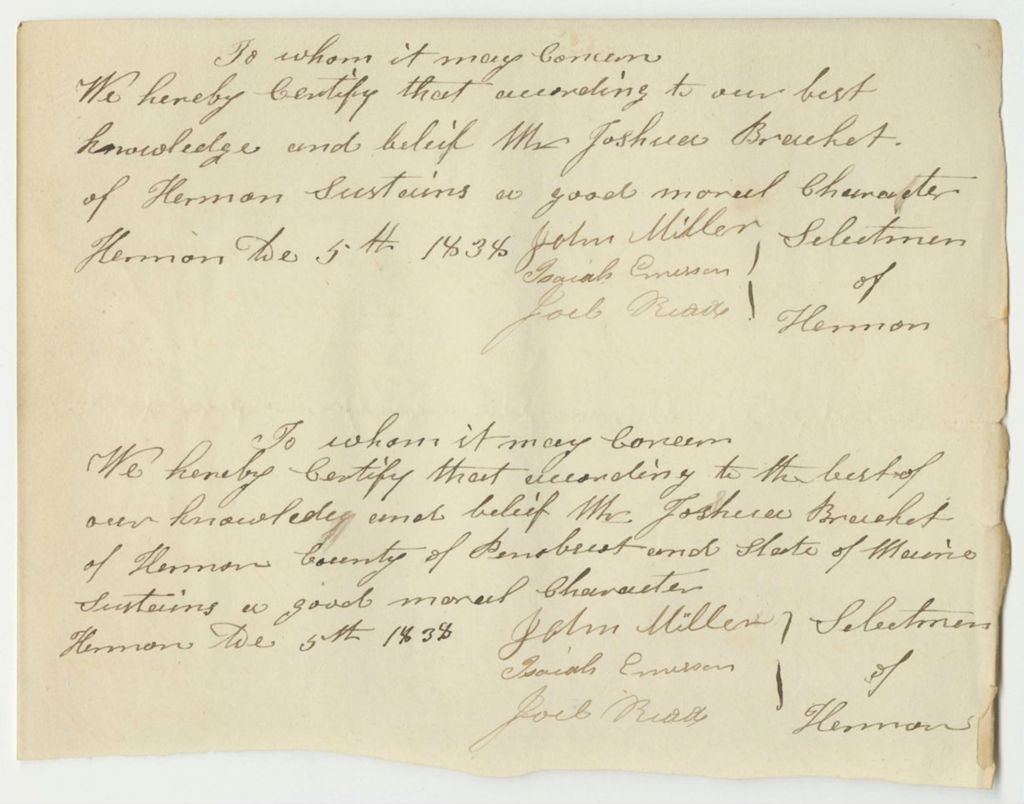 To whom it may Concern
We hereby Certify that according to our best
knowledge and belief Mr Joshua Bracket.
of Hermon Sustains a good moral Character
Hermon De 5th 1838 John Miller } Selectmen
Isaiah Emerson of
Joel Hermon
To whom it may Concern
We hereby Certify that according to the best of
our knowledg and belief Mr. Joshua Bracket
of Hermon County of Penobscot and State of Maine
Sustains a good moral Character
Hermon De 5th 1838 John Miller } Selectmen
Isaiah Emerson of
Joel Hermon